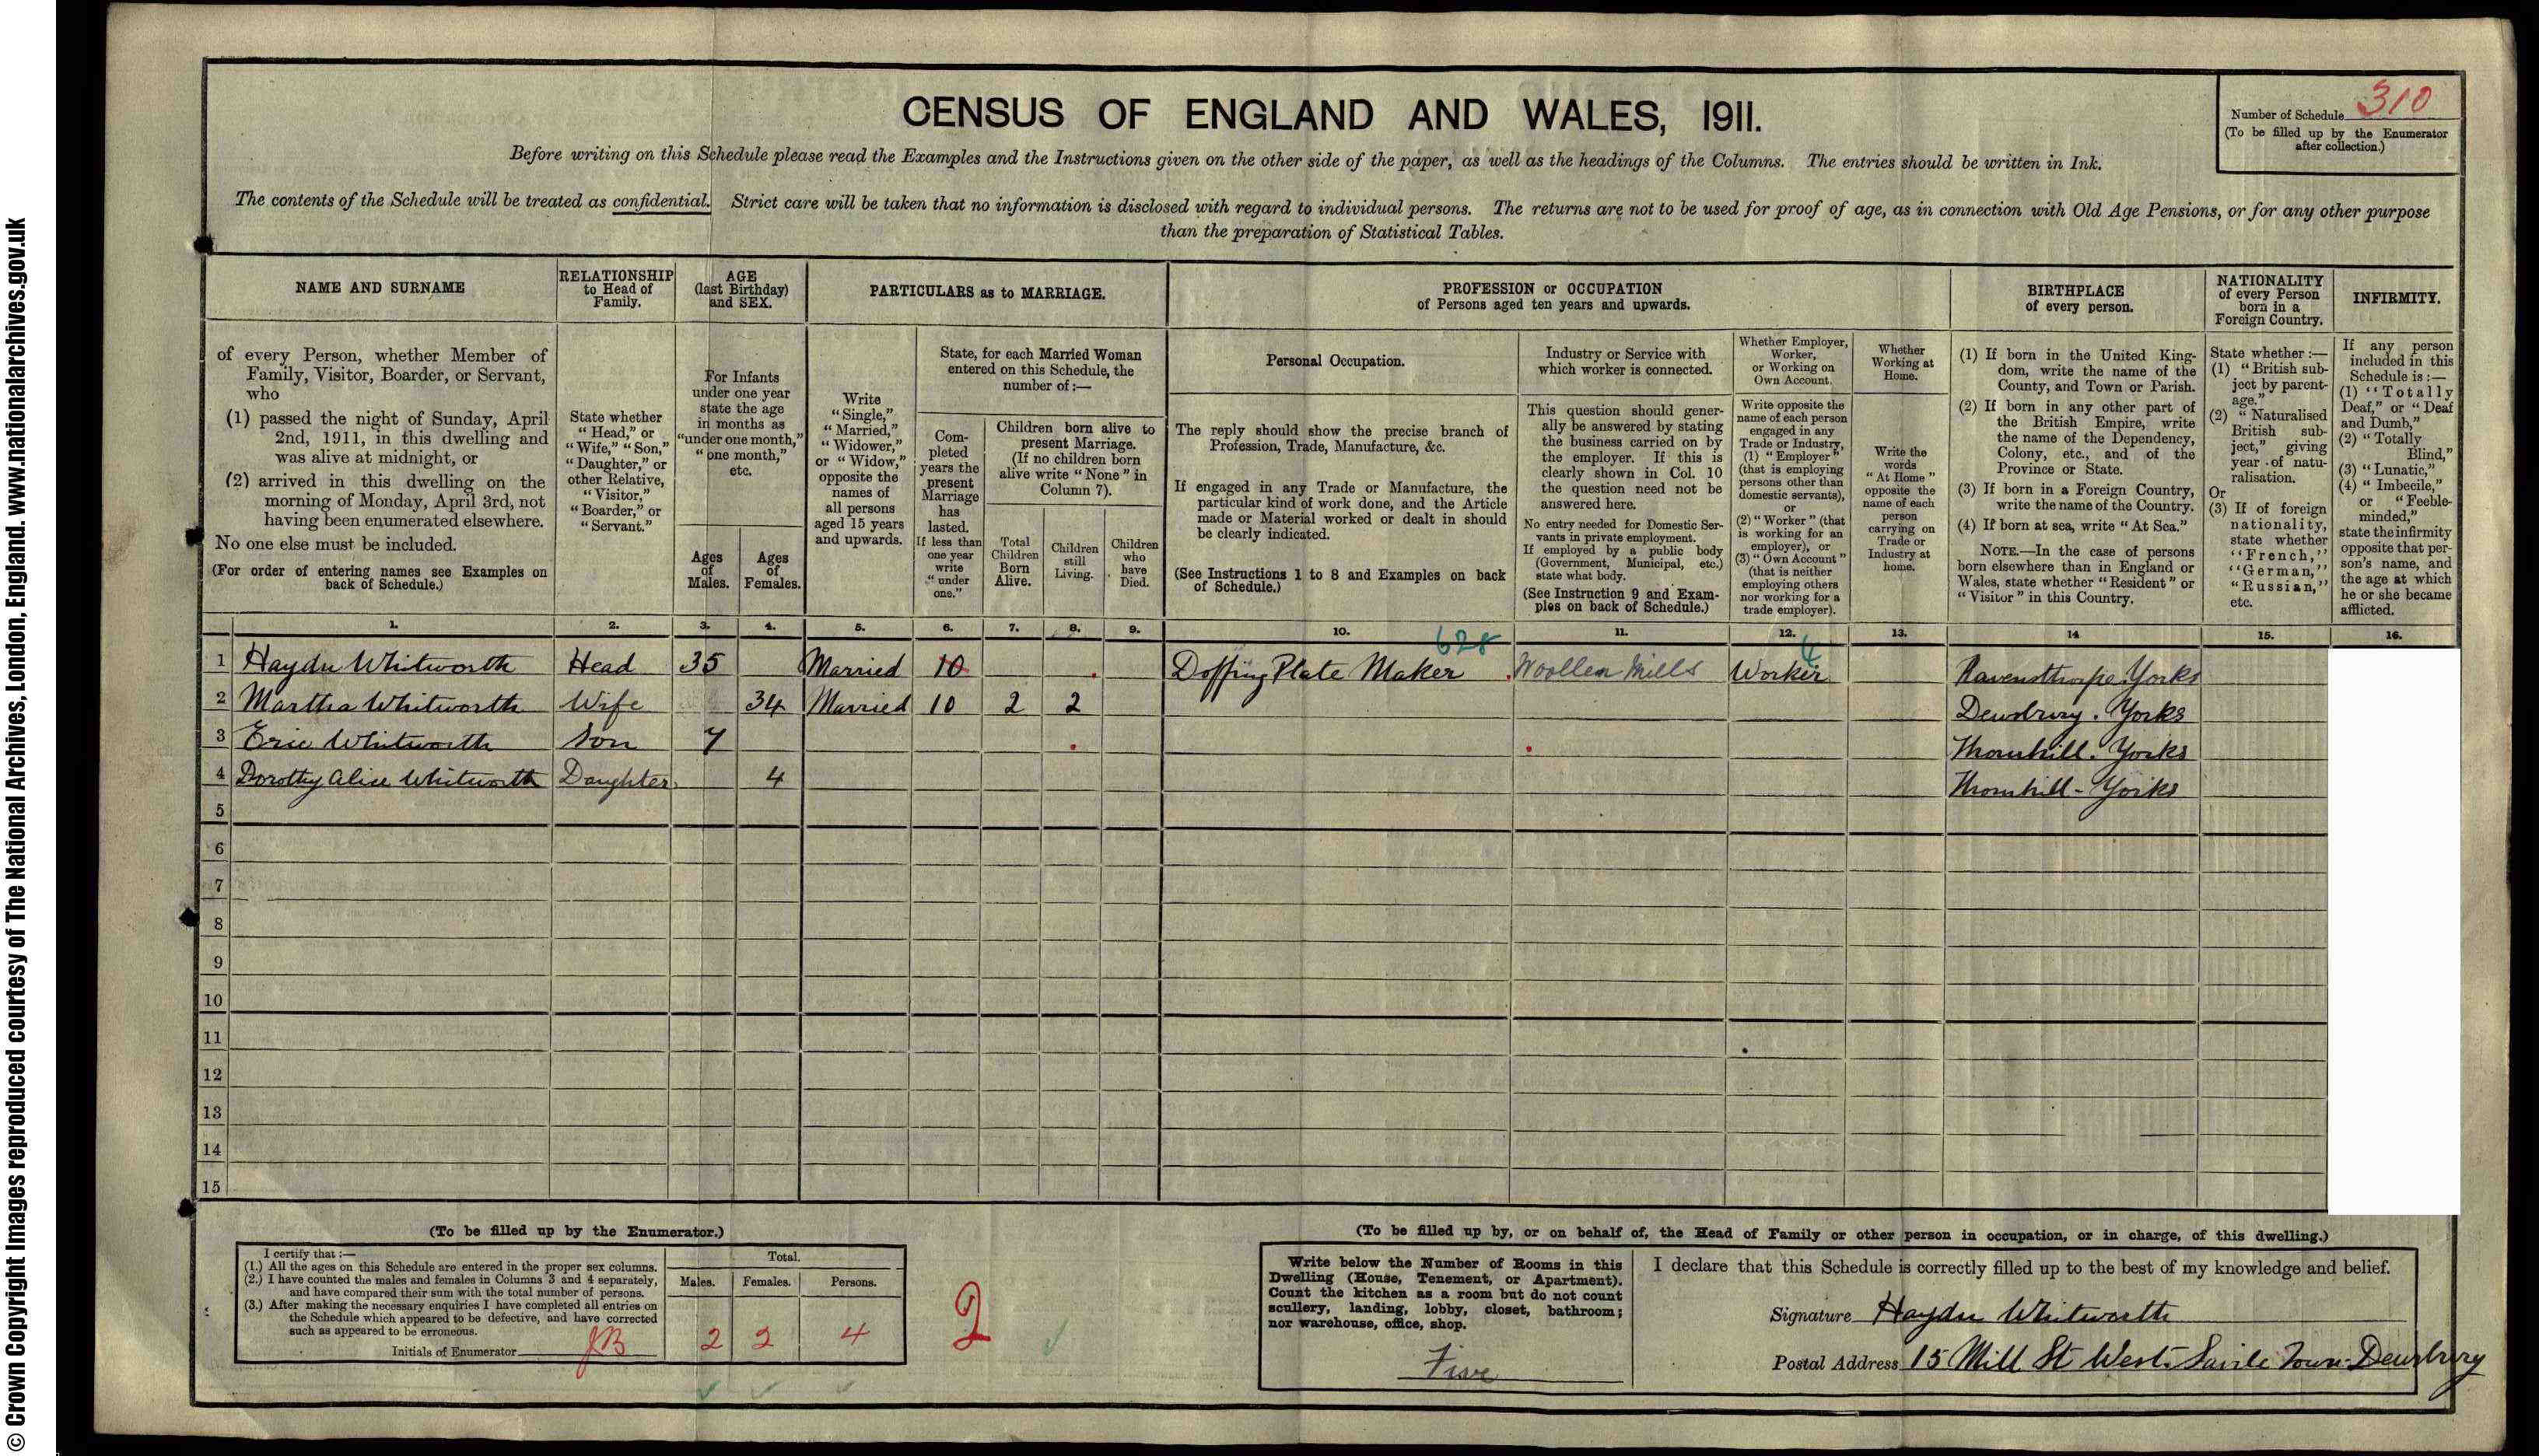 © Crown Copyright Images reproduced courtesy of The National Archives, London, England. www.nationalarchives.gov.uk
CENSUS OF ENGLAND AND WALES, 1911.
Number of Schedule 310
(To be filled up by the Enumerator
after collection.)
Before writing on this Schedule please read the Examples and the Instructions given on the other side of the paper, as well as the headings of the Columns. The entries should be written in Ink.
The contents of the Schedule will be treated as confidential. Strict care will be taken that no information is disclosed with regard to individual persons. The returns are not to be used for proof of age, as in connection with Old Age Pensions, or for any other purpose
than the preparation of Statistical Tables.
NAME AND SURNAME
of every Person, whether Member of
Family, Visitor, Boarder, or Servant,
who
(1) passed the night of Sunday, April
2nd, 1911, in this dwelling and
was alive at midnight, or
(2) arrived in this dwelling on the
morning of Monday, April 3rd, not
having been enumerated elsewhere.
No one else must be included.
(For order of entering names see Examples on
back of Schedule.)
RELATIONSHIP
to Head of
Family.
State whether
"Head," or
"Wife," "Son,"
"Daughter," or
other Relative,
"Visitor,"
"Boarder," or
"Servant."
AGE
(last Birthday)
and SEX.
For Infants
under one year
state the age
in months as
"under one month,"
"one month,"
etc.
Ages
of
Males.
Ages
of
Females.
PARTICULARS as to MARRIAGE.
Write
"Single,"
"Married,"
"Widower,"
or "Widow,"
opposite the
names of
all persons
aged 15 years
and upwards.
State, for each Married Woman
entered on this Schedule, the
number of :—
Com-
pleted
years the
present
Marriage
has
lasted.
If less than
one year
write
"under
one."
Children born alive to
present Marriage.
(If no children born
alive write "None" in
Column 7).
Total
Children
Born
Alive.
Children
still
Living.
Children
who
have
Died.
PROFESSION or OCCUPATION
of Persons aged ten years and upwards.
Personal Occupation.
The reply should show the precise branch of
Profession, Trade, Manufacture, &c.
If engaged in any Trade or Manufacture, the
particular kind of work done, and the Article
made or Material worked or dealt in should
be clearly indicated.
(See Instructions 1 to 8 and Examples on back
of Schedule.)
Industry or Service with
which worker is connected.
This question should gener-
ally be answered by stating
the business carried on by
the employer. If this is
clearly shown in Col. 10
the question need not be
answered here.
No entry needed for Domestic Ser-
vants in private employment.
If employed by a public body
(Government, Municipal, etc.)
state what body.
(See Instruction 9 and Exam-
ples on back of Schedule.)
Whether Employer,
Worker,
or Working on
Own Account.
Write opposite the
name of each person
engaged in any
Trade or Industry,
(1) "Employer"
(that is employing
persons other than
domestic servants),
or
(2) "Worker" (that
is working for an
employer), or
(3) "Own Account"
(that is neither
employing others
nor working for a
trade employer).
Whether
Working at
Home.
Write the
words
"At Home"
opposite the
name of each
person
carrying on
Trade or
Industry at
home.
BIRTHPLACE
of every person.
(1) If born in the United King-
dom, write the name of the
County, and Town or Parish.
(2) If born in any other part of
the British Empire, write
the name of the Dependency,
Colony, etc., and of the
Province or State.
(3) If born in a Foreign Country,
write the name of the Country.
(4) If born at sea, write "At Sea."
NOTE.—In the case of persons
born elsewhere than in England or
Wales, state whether "Resident" or
"Visitor" in this Country.
NATIONALITY
of every Person
born in a
Foreign Country.
State whether :—
(1) "British sub-
ject by parent-
age."
(2) "Naturalised
British sub-
ject," giving
year of natu-
ralisation.
Or
(3) If of foreign
nationality,
state whether
"French,"
"German,"
"Russian,"
etc.
INFIRMITY.
If any person
included in this
Schedule is :—
(1) "Totally
Deaf," or "Deaf
and Dumb,"
(2) "Totally
Blind,"
(3) "Lunatic,"
(4) "Imbecile,"
or "Feeble-
minded,"
state the infirmity
opposite that per-
son's name, and
the age at which
he or she became
afflicted.
1. 2. 3. 4. 5. 6. 7. 8. 9. 10. 11. 12. 13. 14 15. 16.
628 4
1 Haydn Whitworth Head 35 Married 10 Doffing Plate Maker Woollen Mills Worker Ravensthorpe. Yorks
2 Martha Whitworth Wife 34 Married 10 2 2 Dewsbury. Yorks
3 Eric Whitworth Son 7 Thornhill. Yorks
4 Dorothy Alice Whitworth Daughter 4 Thornhill - Yorks
5
6
7
8
9
10
11
12
13
14
15
(To be filled up by the Enumerator.)
I certify that :—
(1.) All the ages on this Schedule are entered in the proper sex columns.
(2.) I have counted the males and females in Columns 3 and 4 separately,
and have compared their sum with the total number of persons.
(3.) After making the necessary enquiries I have completed all entries on
the Schedule which appeared to be defective, and have corrected
such as appeared to be erroneous.
Initials of Enumerator JB
Total.
Males. Females. Persons.
2 2 4
2
(To be filled up by, or on behalf of, the Head of Family or other person in occupation, or in charge, of this dwelling.)
Write below the Number of Rooms in this
Dwelling (House, Tenement, or Apartment).
Count the kitchen as a room but do not count
scullery, landing, lobby, closet, bathroom;
nor warehouse, office, shop.
Five
I declare that this Schedule is correctly filled up to the best of my knowledge and belief.
Signature Haydn Whitworth
Postal Address 15 Mill St West. Savile Town. Dewsbury